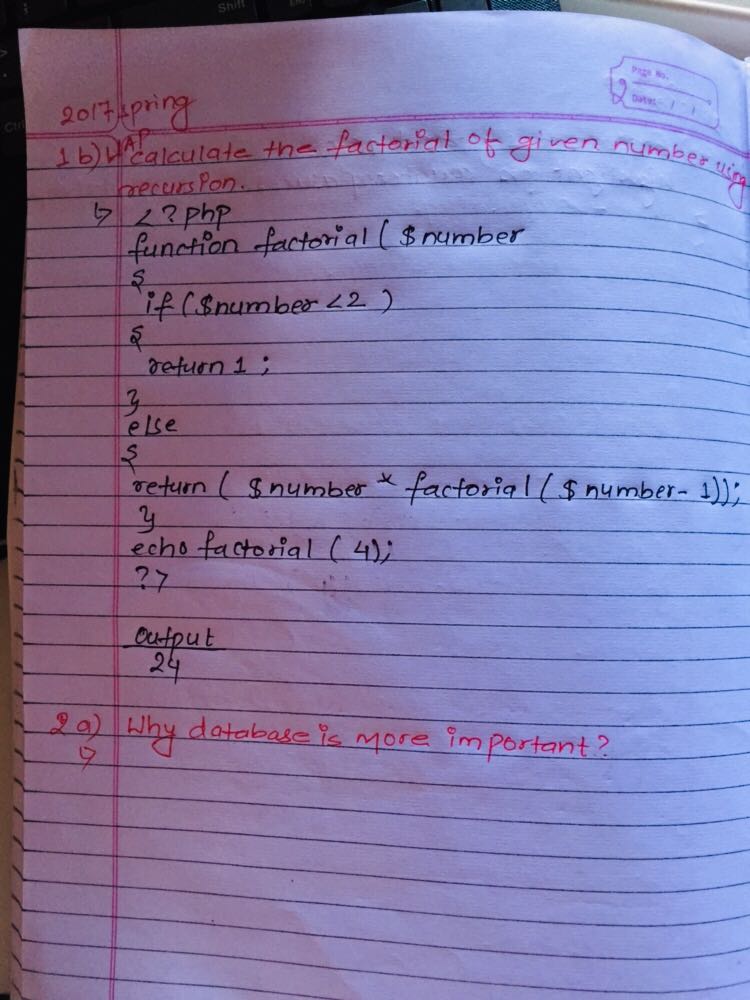 Shift
Ctrl
Page No.
Date: / /
2017 spring
1 b) WAP calculate the factorial of given number using
recursion.
↳ <?php
function factorial ( $number
{
if ($number <2 )
{
return 1 ;
}
else
{
return ( $number * factorial ( $number - 1));
}
echo factorial ( 4);
?>
output
24
2 a) Why database is more important?
↳